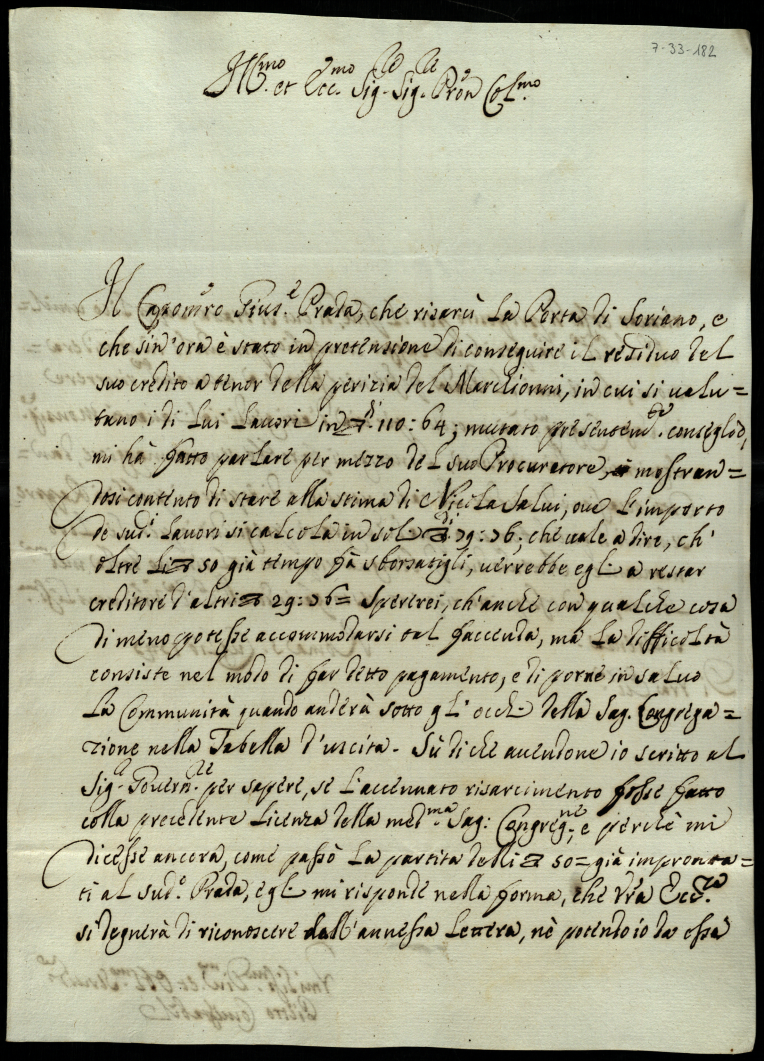 7-33-182
Ill.mo et Ecc.mo Sig.re Sig.re Pron Col.mo
Il Capom.ro Gius.e Prada, che risarcì La Porta di Soriano, e
che sin'ora è stato in pretensione di conseguire il residuo del
suo credito a tenor della perizia del Marchionni, in cui si valu=
tano i di Lui Lavori in di 110:64; mutato presentem.te conseglio,
mi hà fatto parlare per mezzo del suo Procuratore, mostran=
dosi contento di stare alla stima di Nicola Salvi, ove L'importo
de sud.i Lavori si calcola in sol di 79:76; che vale a dire, ch'
oltre Li 50 già tempo fà sborsatigli, verrebbe egli a restar
creditore d'altri 29:76= Spererei, ch'anche con qualche cosa
di meno potesse accommodarsi tal faccenda, mà La difficoltà
consiste nel modo di far detto pagamento, e di porne in salvo
La Communità quando anderà sotto gl'occhi della Sag. Congrega=
zione nella Tabella d'uscita. Sù di che avendone io scritto al
Sig.e Govern.re per sapere, se L'accennato risarcimento fosse fatto
colla precedente Licenza della med.ma Sag: Congreg.ne, e perchè mi
dicesse ancora, come passò La partita delli 50= già impronta=
ti al sud.o Prada, egli mi risponde nella forma, che Vra Ecc.za
si degnerà di riconoscere dall'annessa Lettera, nè potendo io da essa